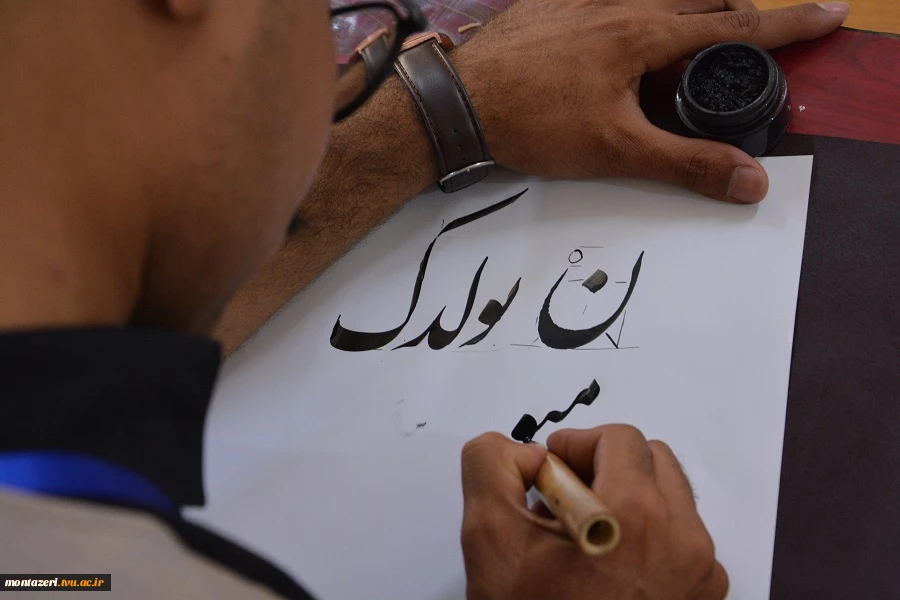 ن بولدک
montazeri.tvu.ac.ir